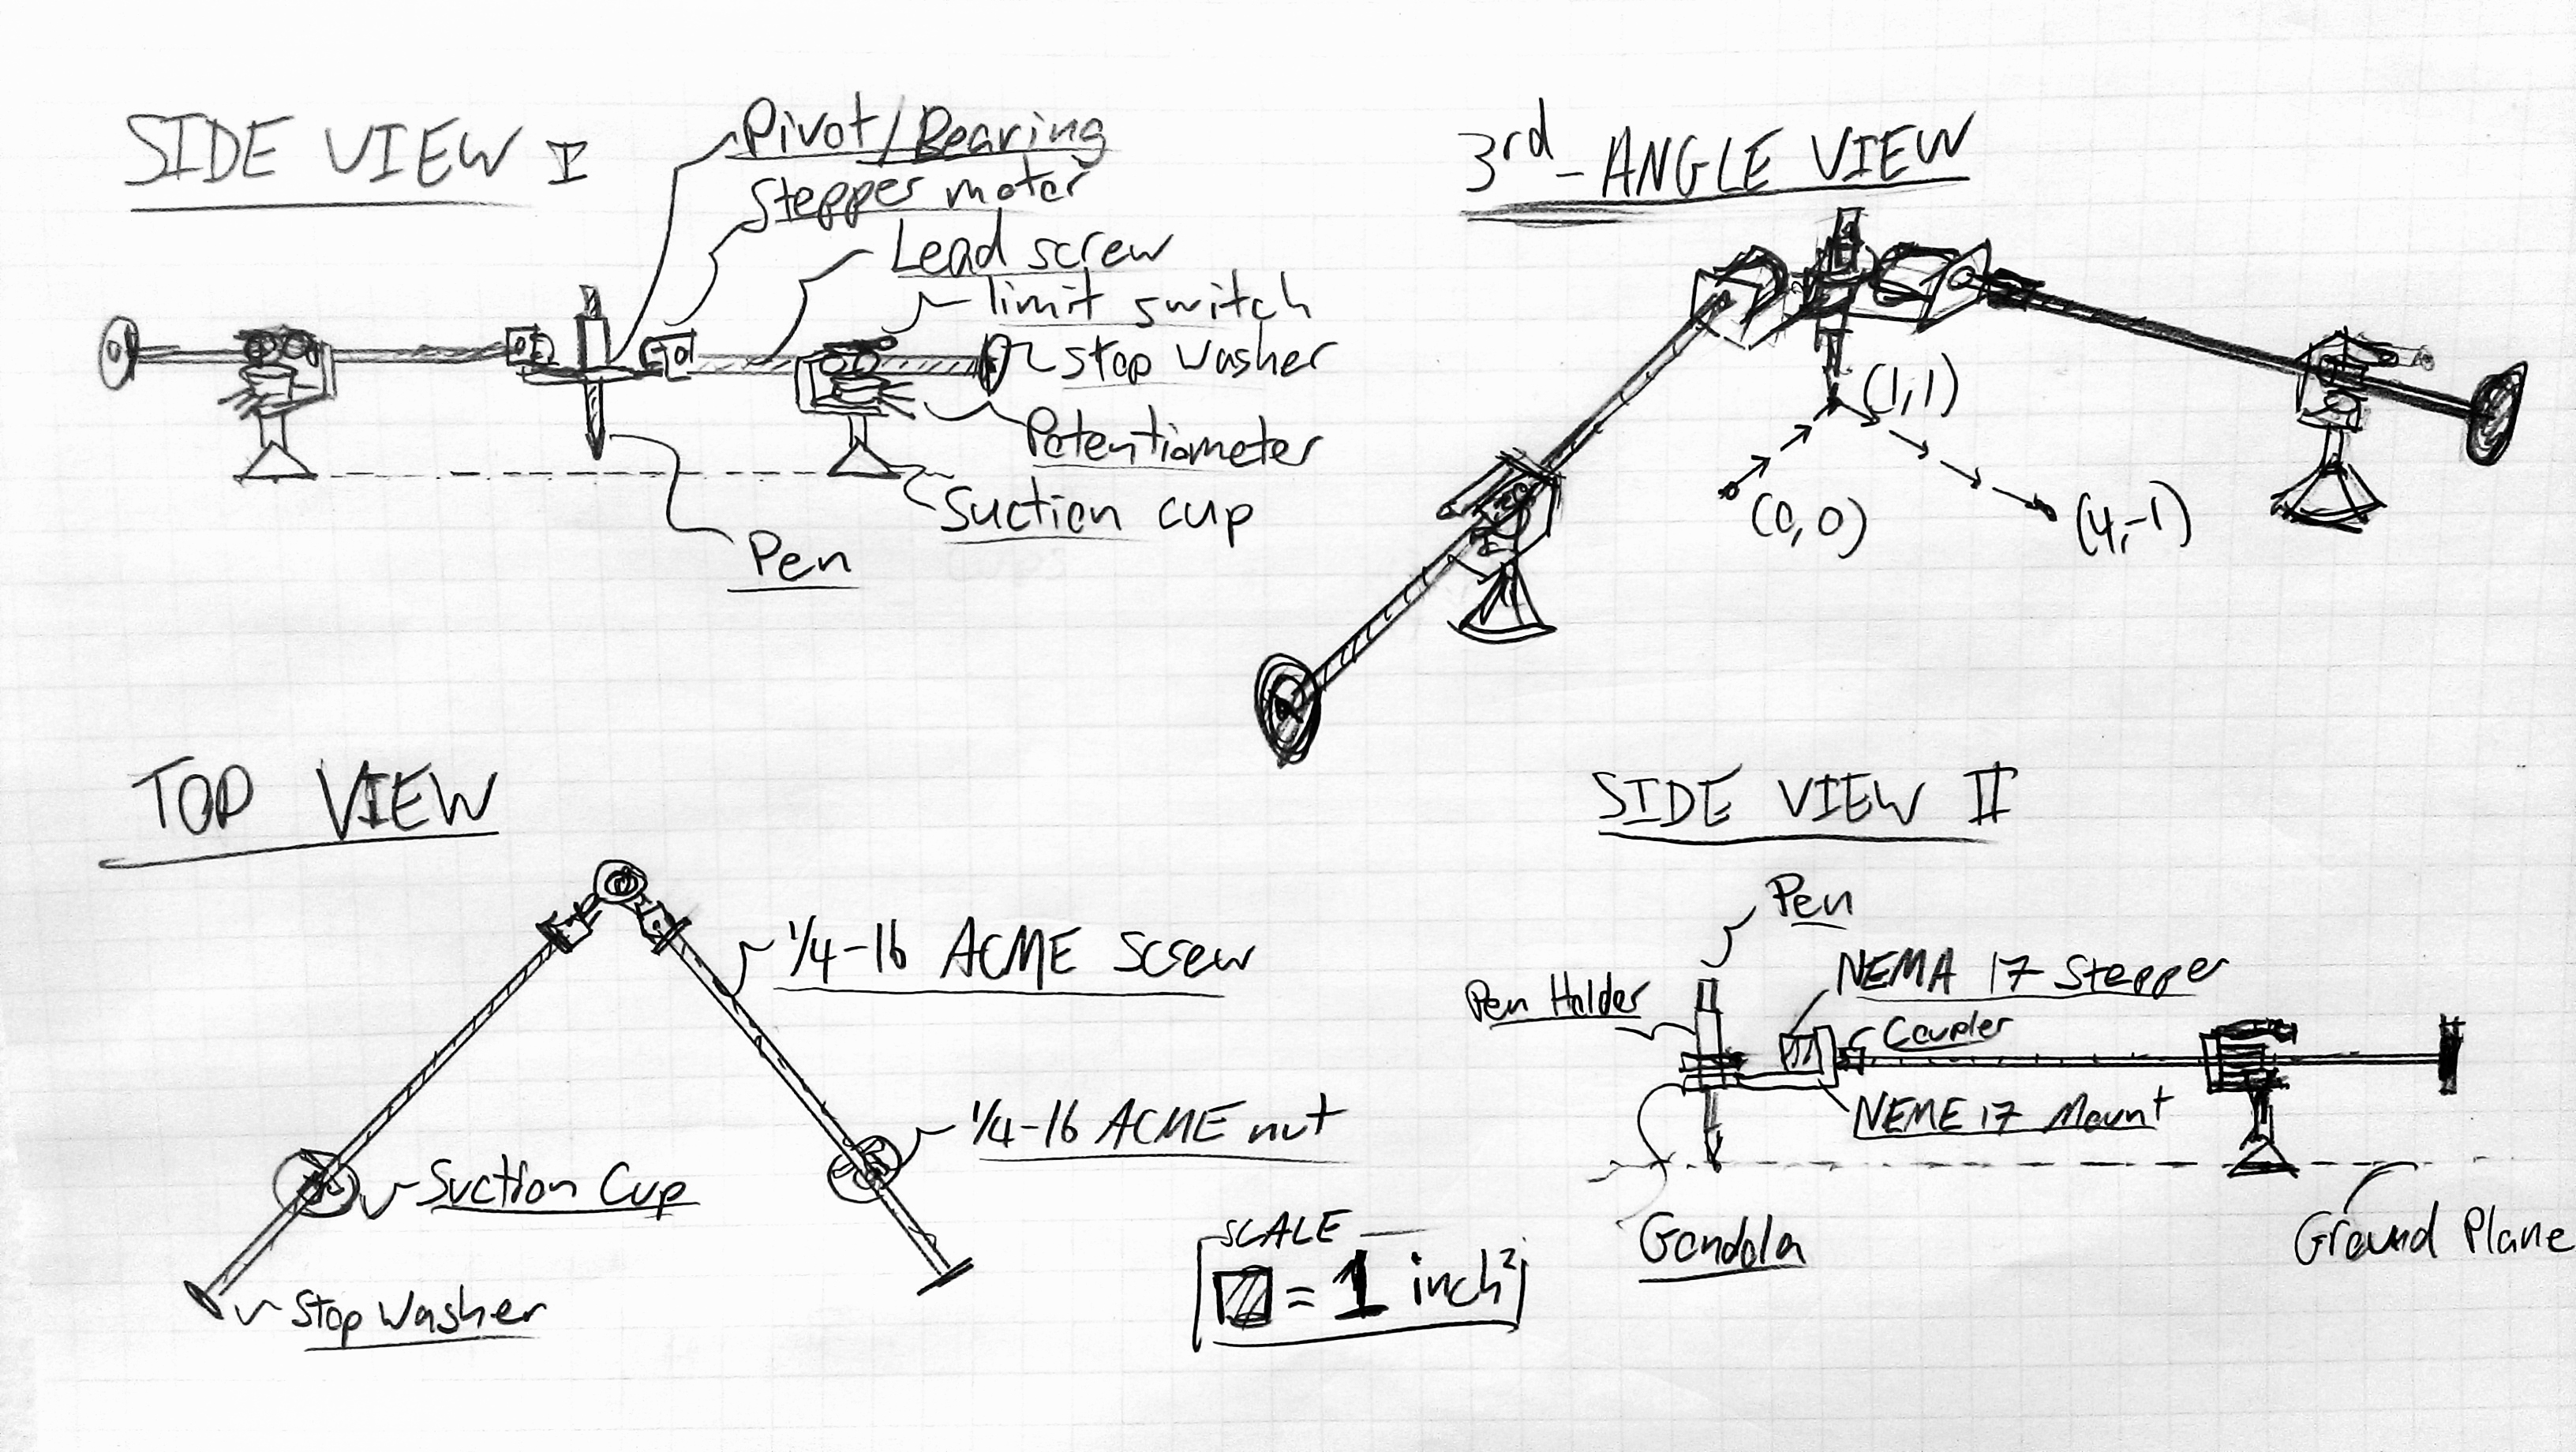 SIDE VIEW I
Pivot/Bearing
Stepper motor
Lead screw
limit switch
Stop Washer
Potentiometer
Suction cup
Pen
3rd-ANGLE VIEW
(1,1)
(0,0)
(4,-1)
TOP VIEW
1/4-16 ACME Screw
1/4-16 ACME nut
Suction Cup
Stop Washer
SCALE
= 1 inch²
SIDE VIEW II
Pen
Pen Holder
NEMA 17 Stepper
Coupler
NEME 17 Mount
Gondola
Ground Plane